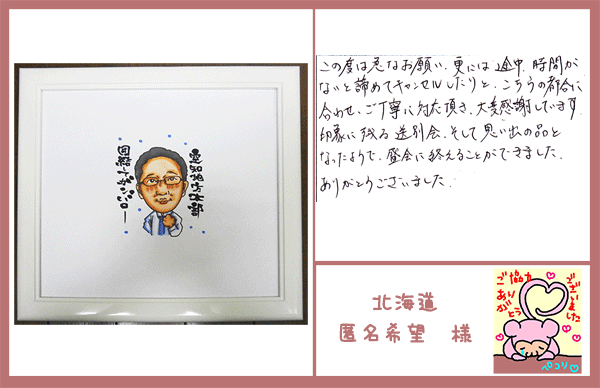 この度は急なお願い、更には途中、時間が
ないと諦めてキャンセルしたりと、こちらの都合に
合わせ、ご丁寧に対応頂き、大変感謝しています。
印象に残る送別会、そして思い出の品と
なったようで、盛会に終えることができました。
ありがとうございました。
愛知地方本部
北海道
匿名希望 様
ご協力
ありがとう
ございました
ペコリ